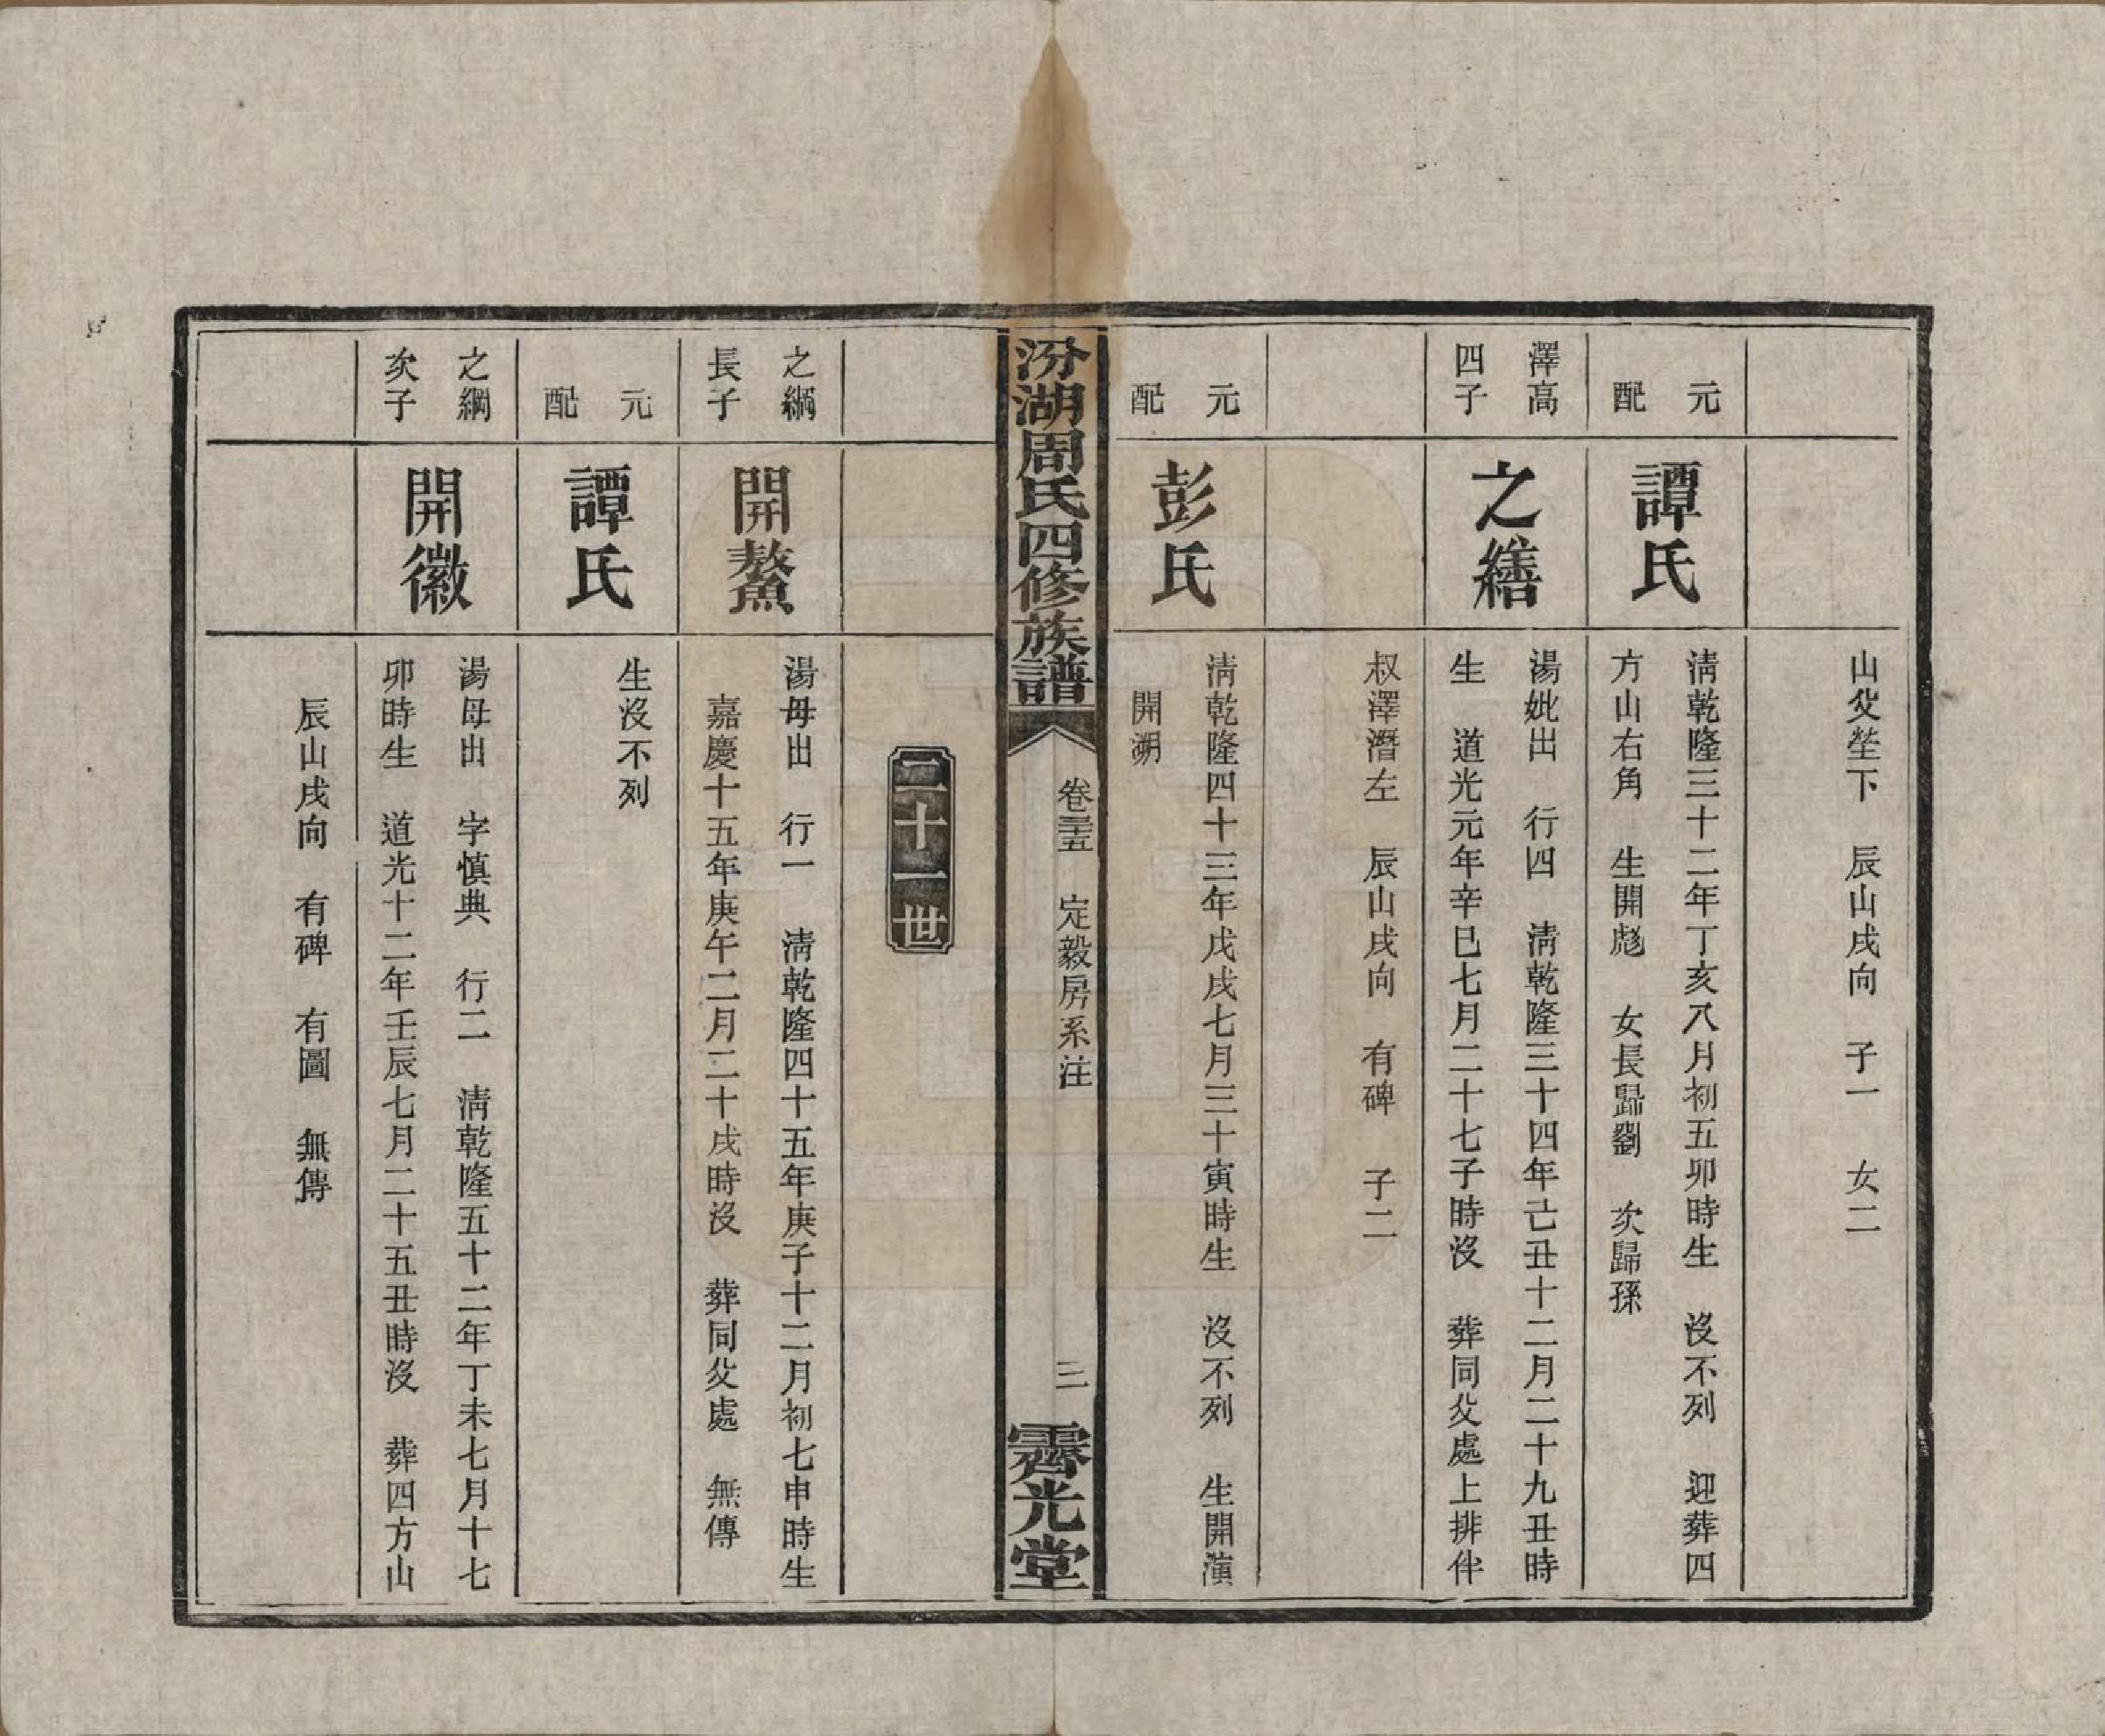 山父塋下　辰山戌向　子一　女二
元配
譚氏
淸乾隆三十二年丁亥八月初五卯時生　沒不列　迎葬四
方山右角　生開彪　女長歸劉　次歸孫
澤高
四子
之繕
湯妣出　行四　淸乾隆三十四年己丑十二月二十九丑時
生　道光元年辛巳七月二十七子時沒　葬同父處上排伴
叔澤潛左　辰山戌向　有碑　子二
元配
彭氏
淸乾隆四十三年戊戌七月三十寅時生　沒不列　生開演
開溯
汾湖周氏四修族譜
卷三五　定毅房系注
三
霽光堂
二十一世
之綱
長子
開鰲
湯母出　行一　淸乾隆四十五年庚子十二月初七申時生
嘉慶十五年庚午二月二十戌時沒　葬同父處　無傳
元配
譚氏
生沒不列
之綱
次子
開徽
湯母出　字慎典　行二　淸乾隆五十二年丁未七月十七
卯時生　道光十二年壬辰七月二十五丑時沒　葬四方山
辰山戌向　有碑　有圖　無傳